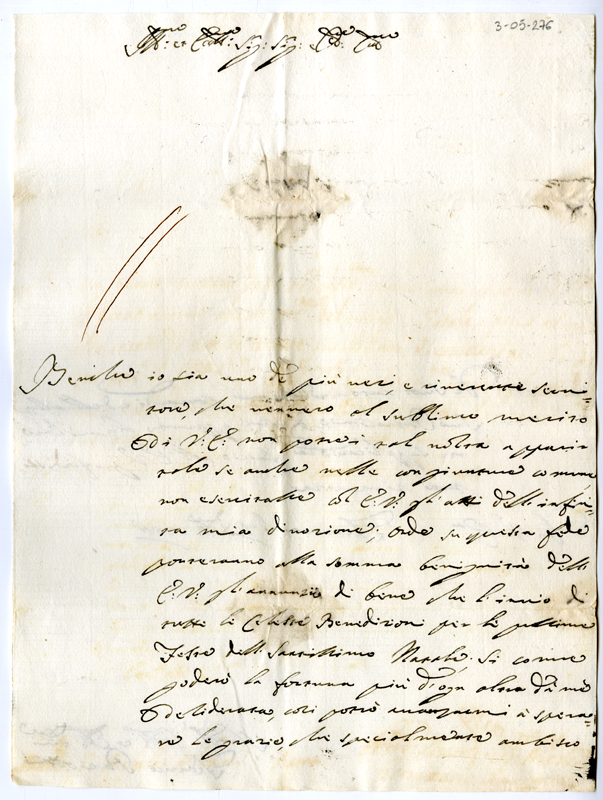 3-05-276
Ill:mo et Ecc:mo Sig: Sig:
Benche io sia uno de più veri, e riverente servi-
tore, che vennero al sublime merito
di V: E: non potrei tal
tale se anche nelle congiunture comune
non esercitasse col E: V: gli atti dell infini-
ta mia divozione; onde su questa fede
porteranno alla somma benignità dell
E: V: gli annunzi di bene che l invio di
tutte le Celeste Benedizioni per le prossime
Feste dell Santissimo Natale; si come
goderò la fortuna più d'ogn altra da me
desiderata, così potrò a spera-
re le grazie, che specialmente ambisco